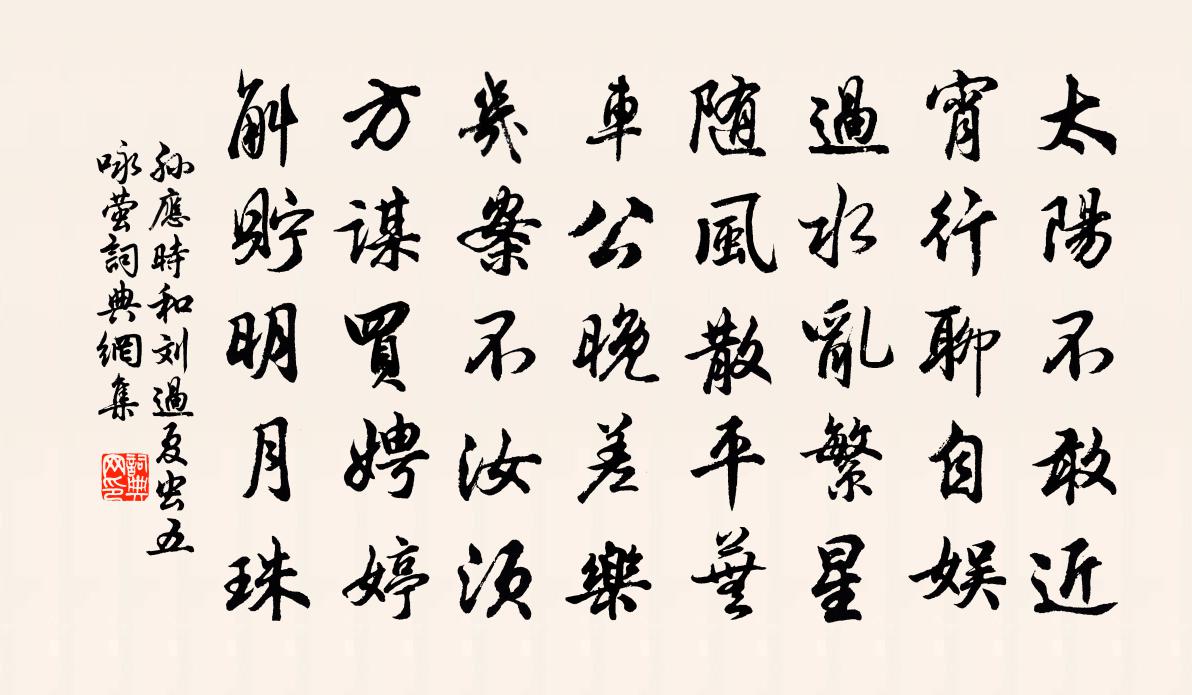 太陽不敢近
宵行聊自娱
過水亂繁星
随風散平蕪
車公晚差樂
幾案不汝湏
方謀買娉婷
斛貯明月珠
孫應時和刘過夏虫五
咏萤詞典網集
詞典网印